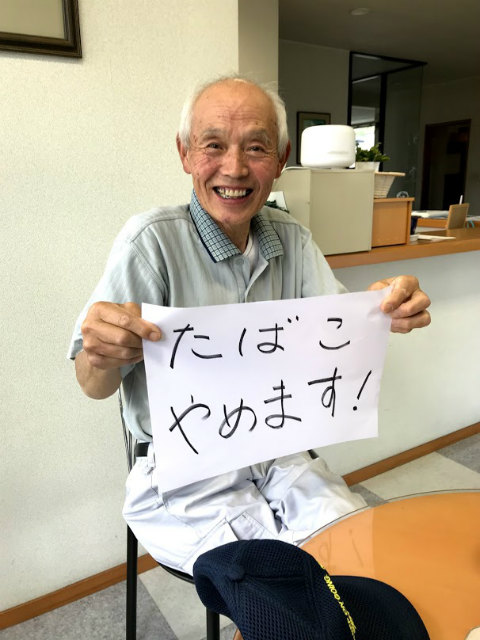 たばこ
やめます!